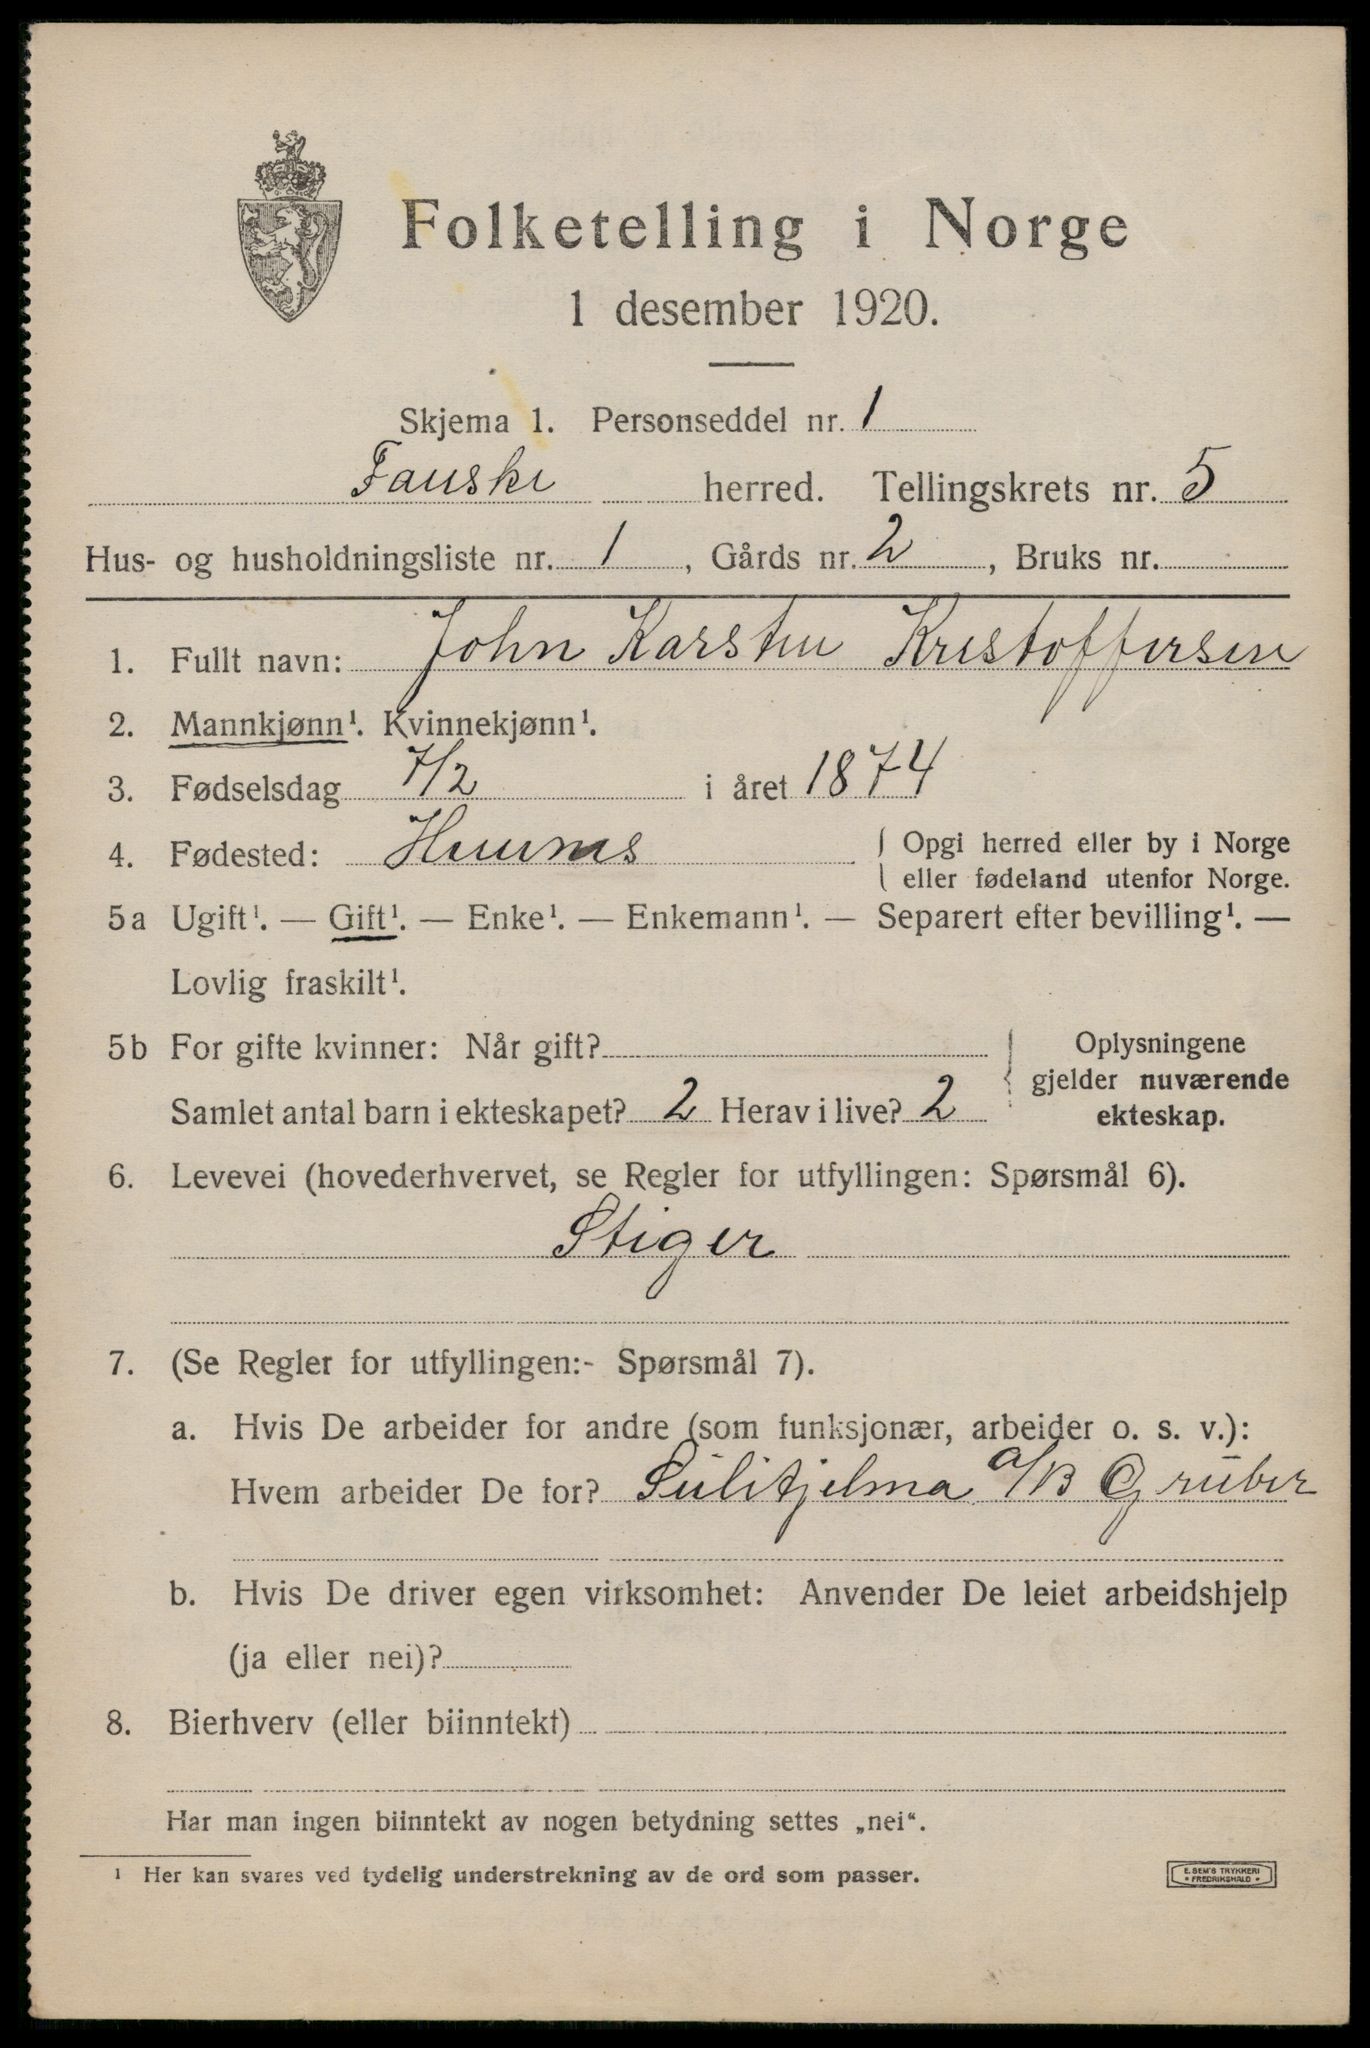 Folketelling i Norge
1 desember 1920.
Skjema 1. Personseddel nr. 1
Fauske herred. Tellingskrets nr. 5
Hus- og husholdningsliste nr. 1, Gårds nr. 2, Bruks nr.
1. Fullt navn: John Karsten Kristoffersen
2. Mannkjønn¹. Kvinnekjønn¹.
3. Fødselsdag 7/2 i året 1874
4. Fødested: Hemnes { Opgi herred eller by i Norge
eller fødeland utenfor Norge.
5a Ugift¹. — Gift¹. — Enke¹. — Enkemann¹. — Separert efter bevilling¹. —
Lovlig fraskilt¹.
5b For gifte kvinner: Når gift?
Samlet antal barn i ekteskapet? 2 Herav i live? 2
{ Oplysningene
gjelder nuværende
ekteskap.
6. Levevei (hovederhvervet, se Regler for utfyllingen: Spørsmål 6).
Stiger
7. (Se Regler for utfyllingen:- Spørsmål 7).
a. Hvis De arbeider for andre (som funksjonær, arbeider o. s. v.):
Hvem arbeider De for? Sulitjelma a/B Gruber
b. Hvis De driver egen virksomhet: Anvender De leiet arbeidshjelp
(ja eller nei)?
8. Bierhverv (eller biinntekt)
Har man ingen biinntekt av nogen betydning settes „nei“.
¹ Her kan svares ved tydelig understrekning av de ord som passer.
E. SEM'S TRYKKERI
• FREDRIKSHALD •